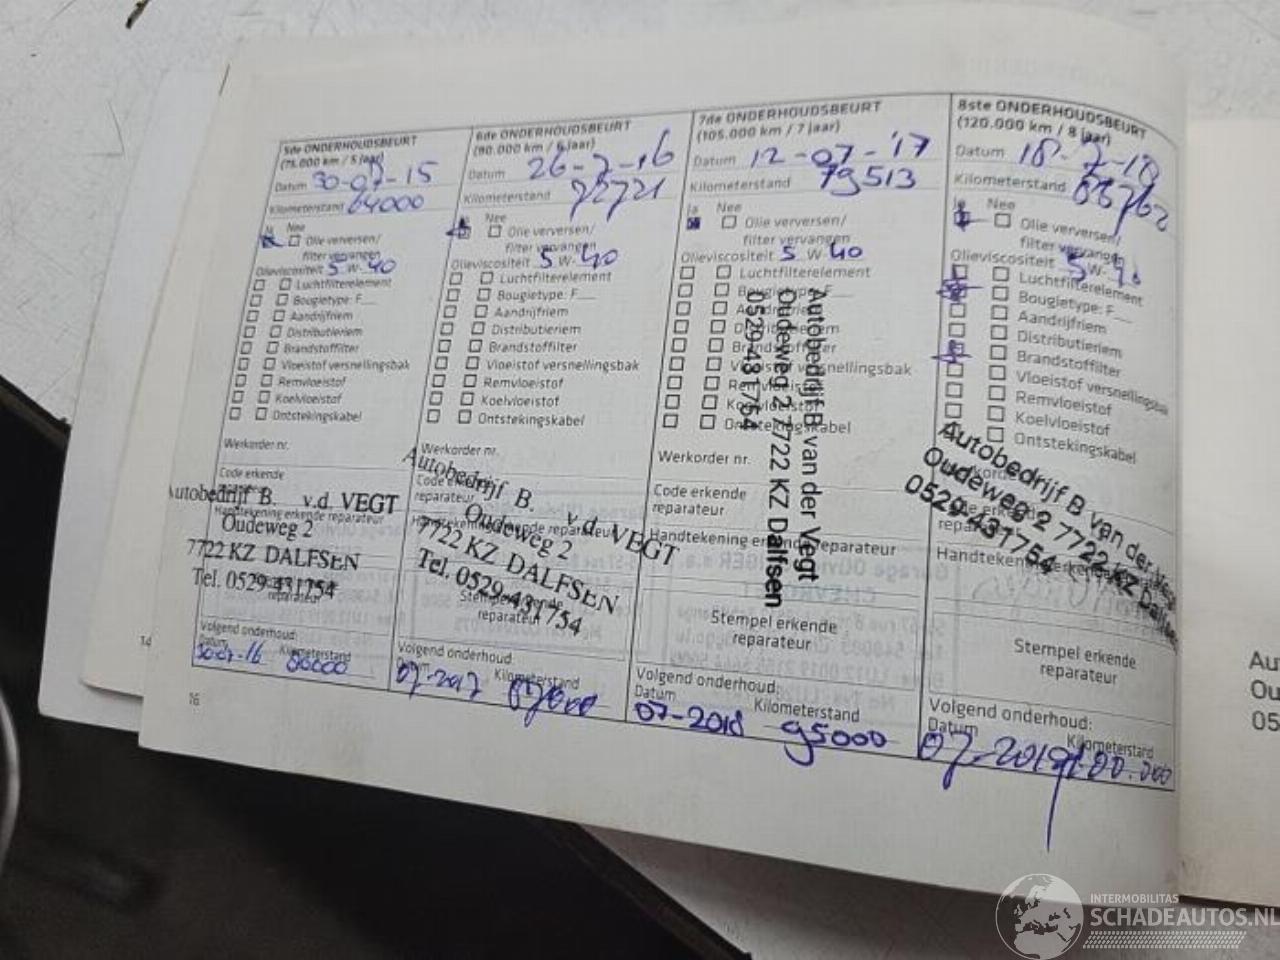 5de ONDERHOUDSBEURT
(75.000 km / 5 jaar)
Datum 30-07-15
Kilometerstand 64000
Ja Nee
Olie verversen/
filter vervangen
Olieviscositeit 5 W- 40
Luchtfilterelement
Bougietype: F
Aandrijfriem
Distributieriem
Brandstoffilter
Vloeistof versnellingsbak
Remvloeistof
Koelvloeistof
Ontstekingskabel
Werkorder nr.
Code erkende
Autobedrijf B. v.d. VEGT
Handtekening erkende reparateur
Oudeweg 2
7722 KZ DALFSEN
Tel. 0529-431754
reparateur
Volgend onderhoud:
Datum Kilometerstand
30-07-16 80000
16
6de ONDERHOUDSBEURT
(90.000 km / 6 jaar)
Datum 26-7-16
Kilometerstand 72721
Ja Nee
Olie verversen/
filter vervangen
Olieviscositeit 5 W- 40
Luchtfilterelement
Bougietype: F
Aandrijfriem
Distributieriem
Brandstoffilter
Vloeistof versnellingsbak
Remvloeistof
Koelvloeistof
Ontstekingskabel
Werkorder nr.
Code erkende
reparateur
Autobedrijf B. v.d. VEGT
Handtekening erkende reparateur
Oudeweg 2
7722 KZ DALFSEN
Tel. 0529-431754
Stempel erkende
reparateur
Volgend onderhoud:
Datum Kilometerstand
07-2017
7de ONDERHOUDSBEURT
(105.000 km / 7 jaar)
Datum 12-07-'17
Kilometerstand 79513
Ja Nee
Olie verversen/
filter vervangen
Olieviscositeit 5 W- 40
Luchtfilterelement
Bougietype: F
Aandrijfriem
Distributieriem
Brandstoffilter
Vloeistof versnellingsbak
Remvloeistof
Koelvloeistof
Ontstekingskabel
Autobedrijf B van der Vegt
Oudeweg 2 7722 KZ Dalfsen
0529-431754
Werkorder nr.
Code erkende
reparateur
Handtekening erkende reparateur
Stempel erkende
reparateur
Volgend onderhoud:
Datum Kilometerstand
07-2018 95000
8ste ONDERHOUDSBEURT
(120.000 km / 8 jaar)
Datum 18-7-18
Kilometerstand
Ja Nee
Olie verversen/
filter vervangen
Olieviscositeit 5 W-
Luchtfilterelement
Bougietype: F
Aandrijfriem
Distributieriem
Brandstoffilter
Vloeistof versnellingsbak
Remvloeistof
Koelvloeistof
Ontstekingskabel
Autobedrijf B van der
Oudeweg 2 7722 KZ Dalfsen
0529-431754
Handtekening erkende
Stempel erkende
reparateur
Volgend onderhoud:
Datum Kilometerstand
07-2019 100.000
14
Au
Ou
05
INTERMOBILITAS
SCHADEAUTOS.NL